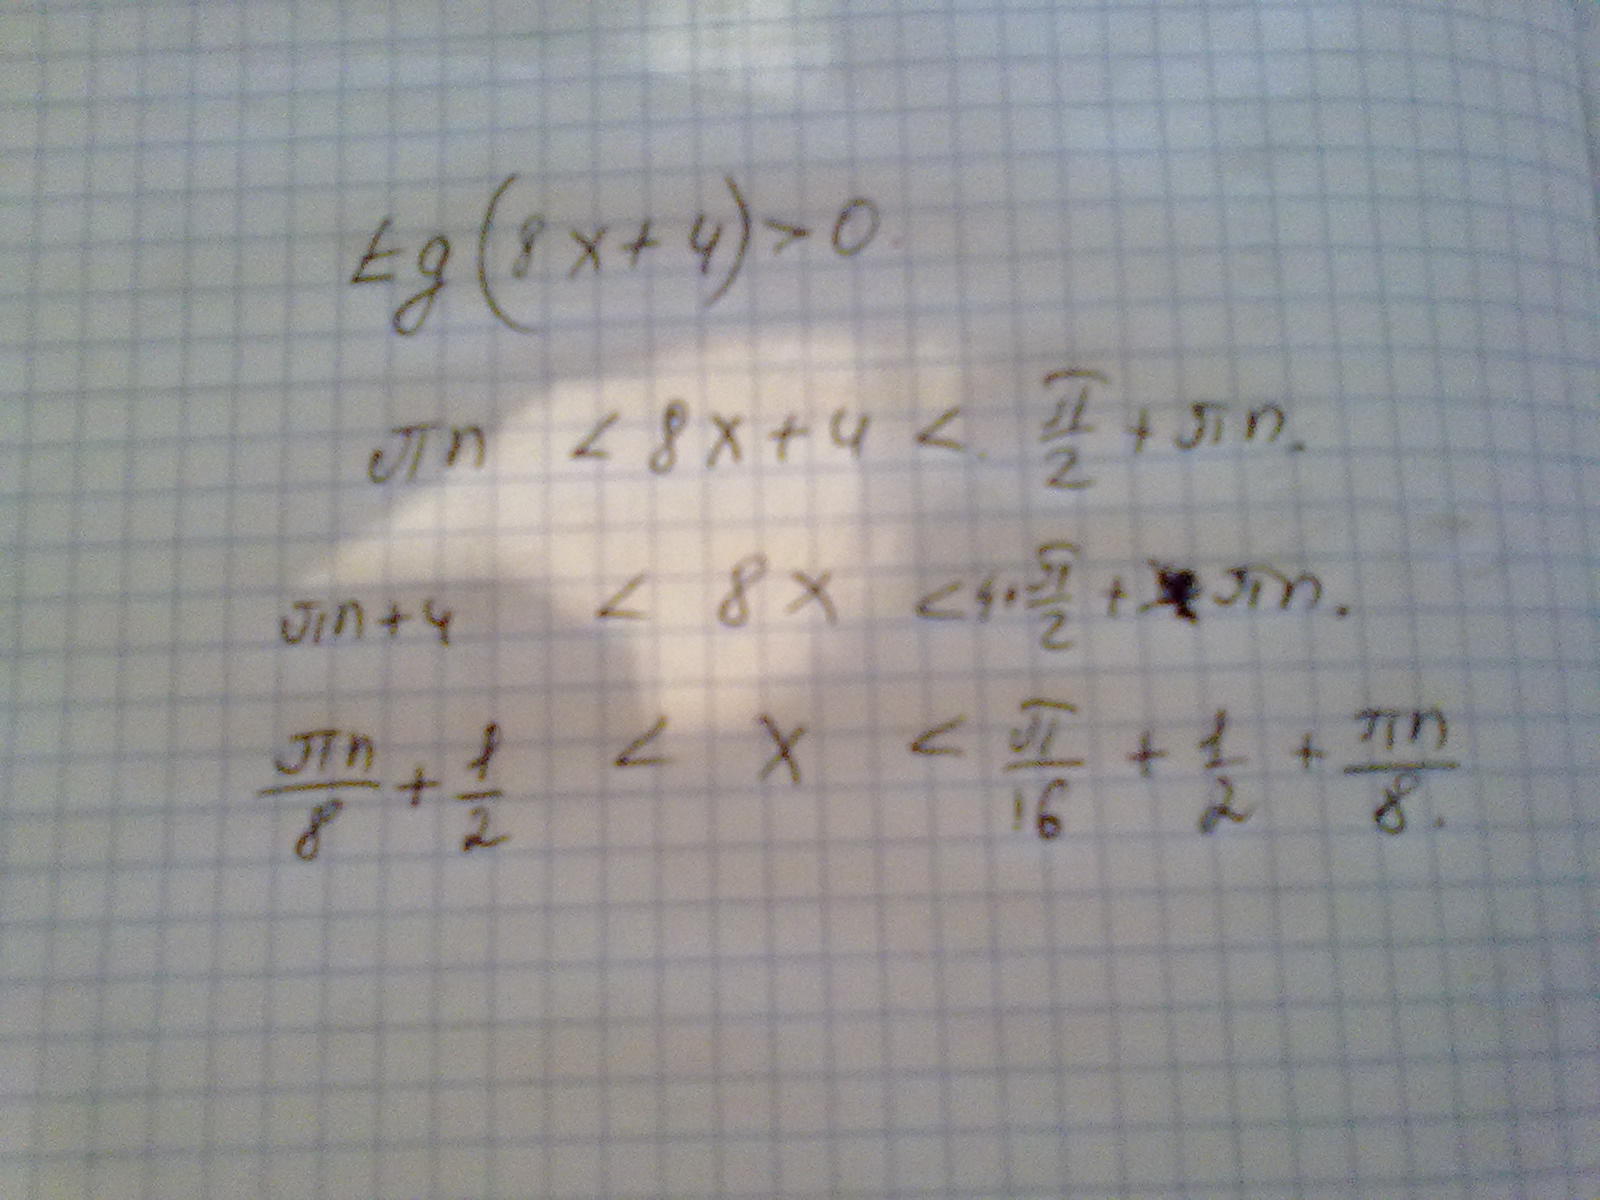 tg(8x+4)>0.
πn < 8x+4 < π/2 + πn.
πn+4 < 8x < 4+π/2 + πn.
πn/8 + 1/2 < x < π/16 + 1/2 + πn/8.